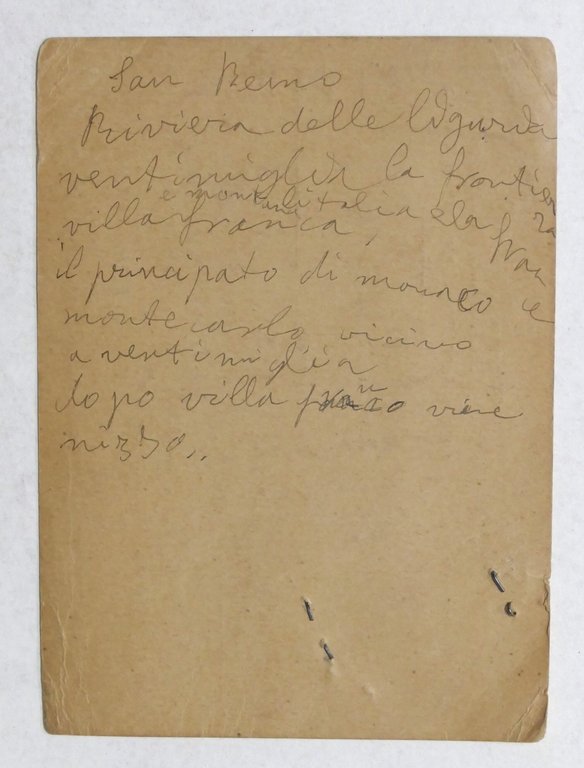 San Remo
Riviera delle liguria
ventimiglia la frontiera
e montana
villafranca, l'italia e la fran
il principato di monaco
montecarlo vicino
a ventimiglia
dopo villa franco viene
nizza..